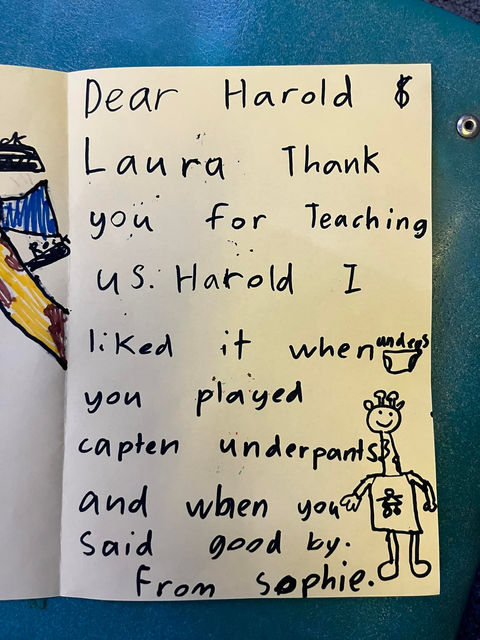 Dear Harold &
Laura Thank
you for Teaching
us. Harold I
liked it when
undeys
you played
capten underpants
and when you
said good by.
From Sophie.